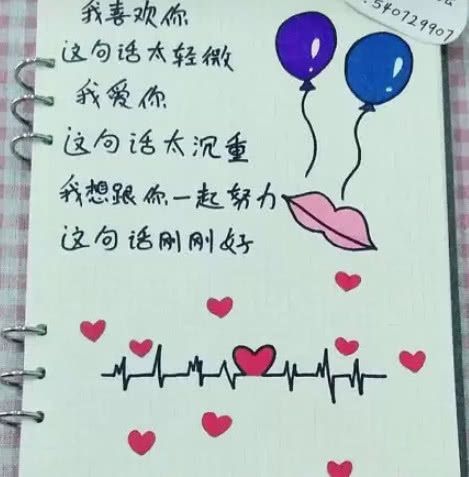 我喜欢你
这句话太轻微
我爱你
这句话太沉重
我想跟你一起努力
这句话刚刚好
:540729907